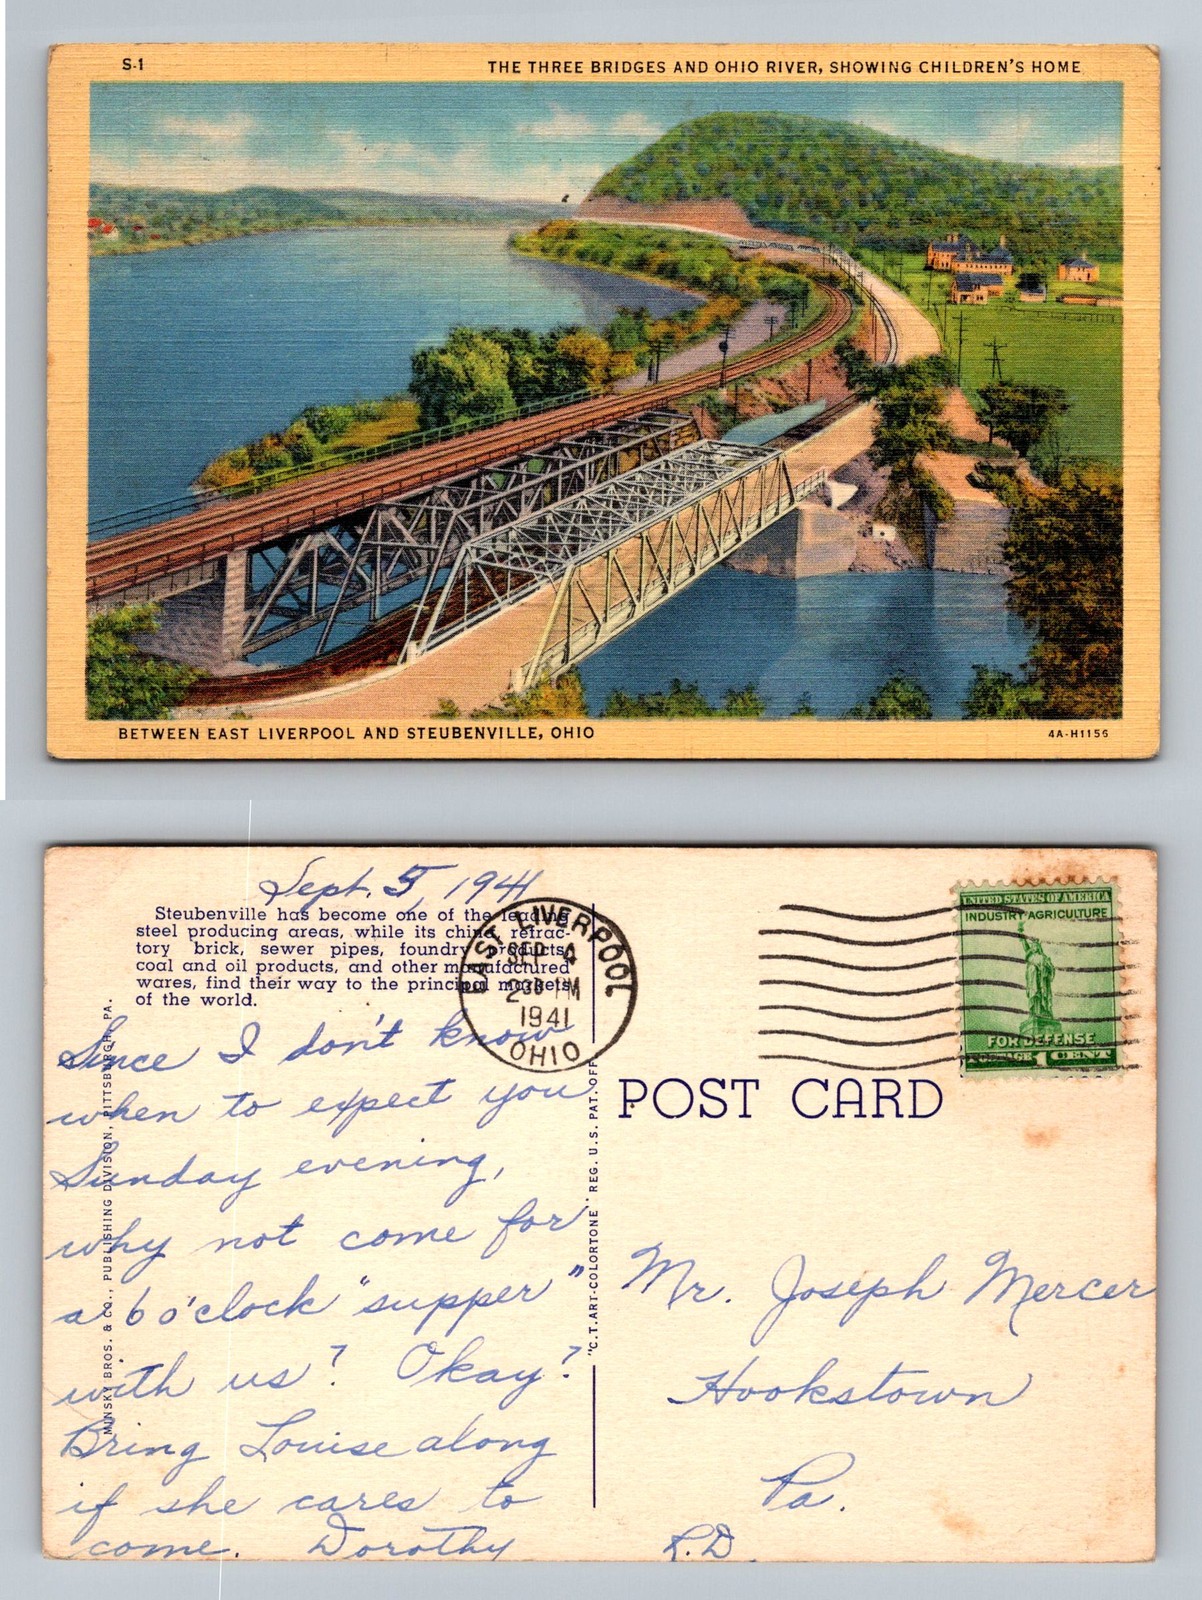 S-1
THE THREE BRIDGES AND OHIO RIVER, SHOWING CHILDREN'S HOME
BETWEEN EAST LIVERPOOL AND STEUBENVILLE, OHIO
4A-H1156
Sept. 5, 1941
Steubenville has become one of the leading
steel producing areas, while its china, refrac-
tory brick, sewer pipes, foundry products,
coal and oil products, and other manufactured
wares, find their way to the principal markets
of the world.
Since I don't know
when to expect you
Sunday evening,
why not come for
a 6 o'clock "supper"
with us? Okay?
Bring Louise along
if she cares to
come. Dorothy
MINSKY BROS. & CO., PUBLISHING DIVISION, PITTSBURGH, PA.
"C.T. ART-COLORTONE" REG. U.S. PAT. OFF.
EAST LIVERPOOL
SEP 4
PM
1941
OHIO
UNITED STATES OF AMERICA
INDUSTRY AGRICULTURE
FOR DEFENSE
POSTAGE 1 CENT
POST CARD
Mr. Joseph Mercer
Hookstown
Pa.
R.D.